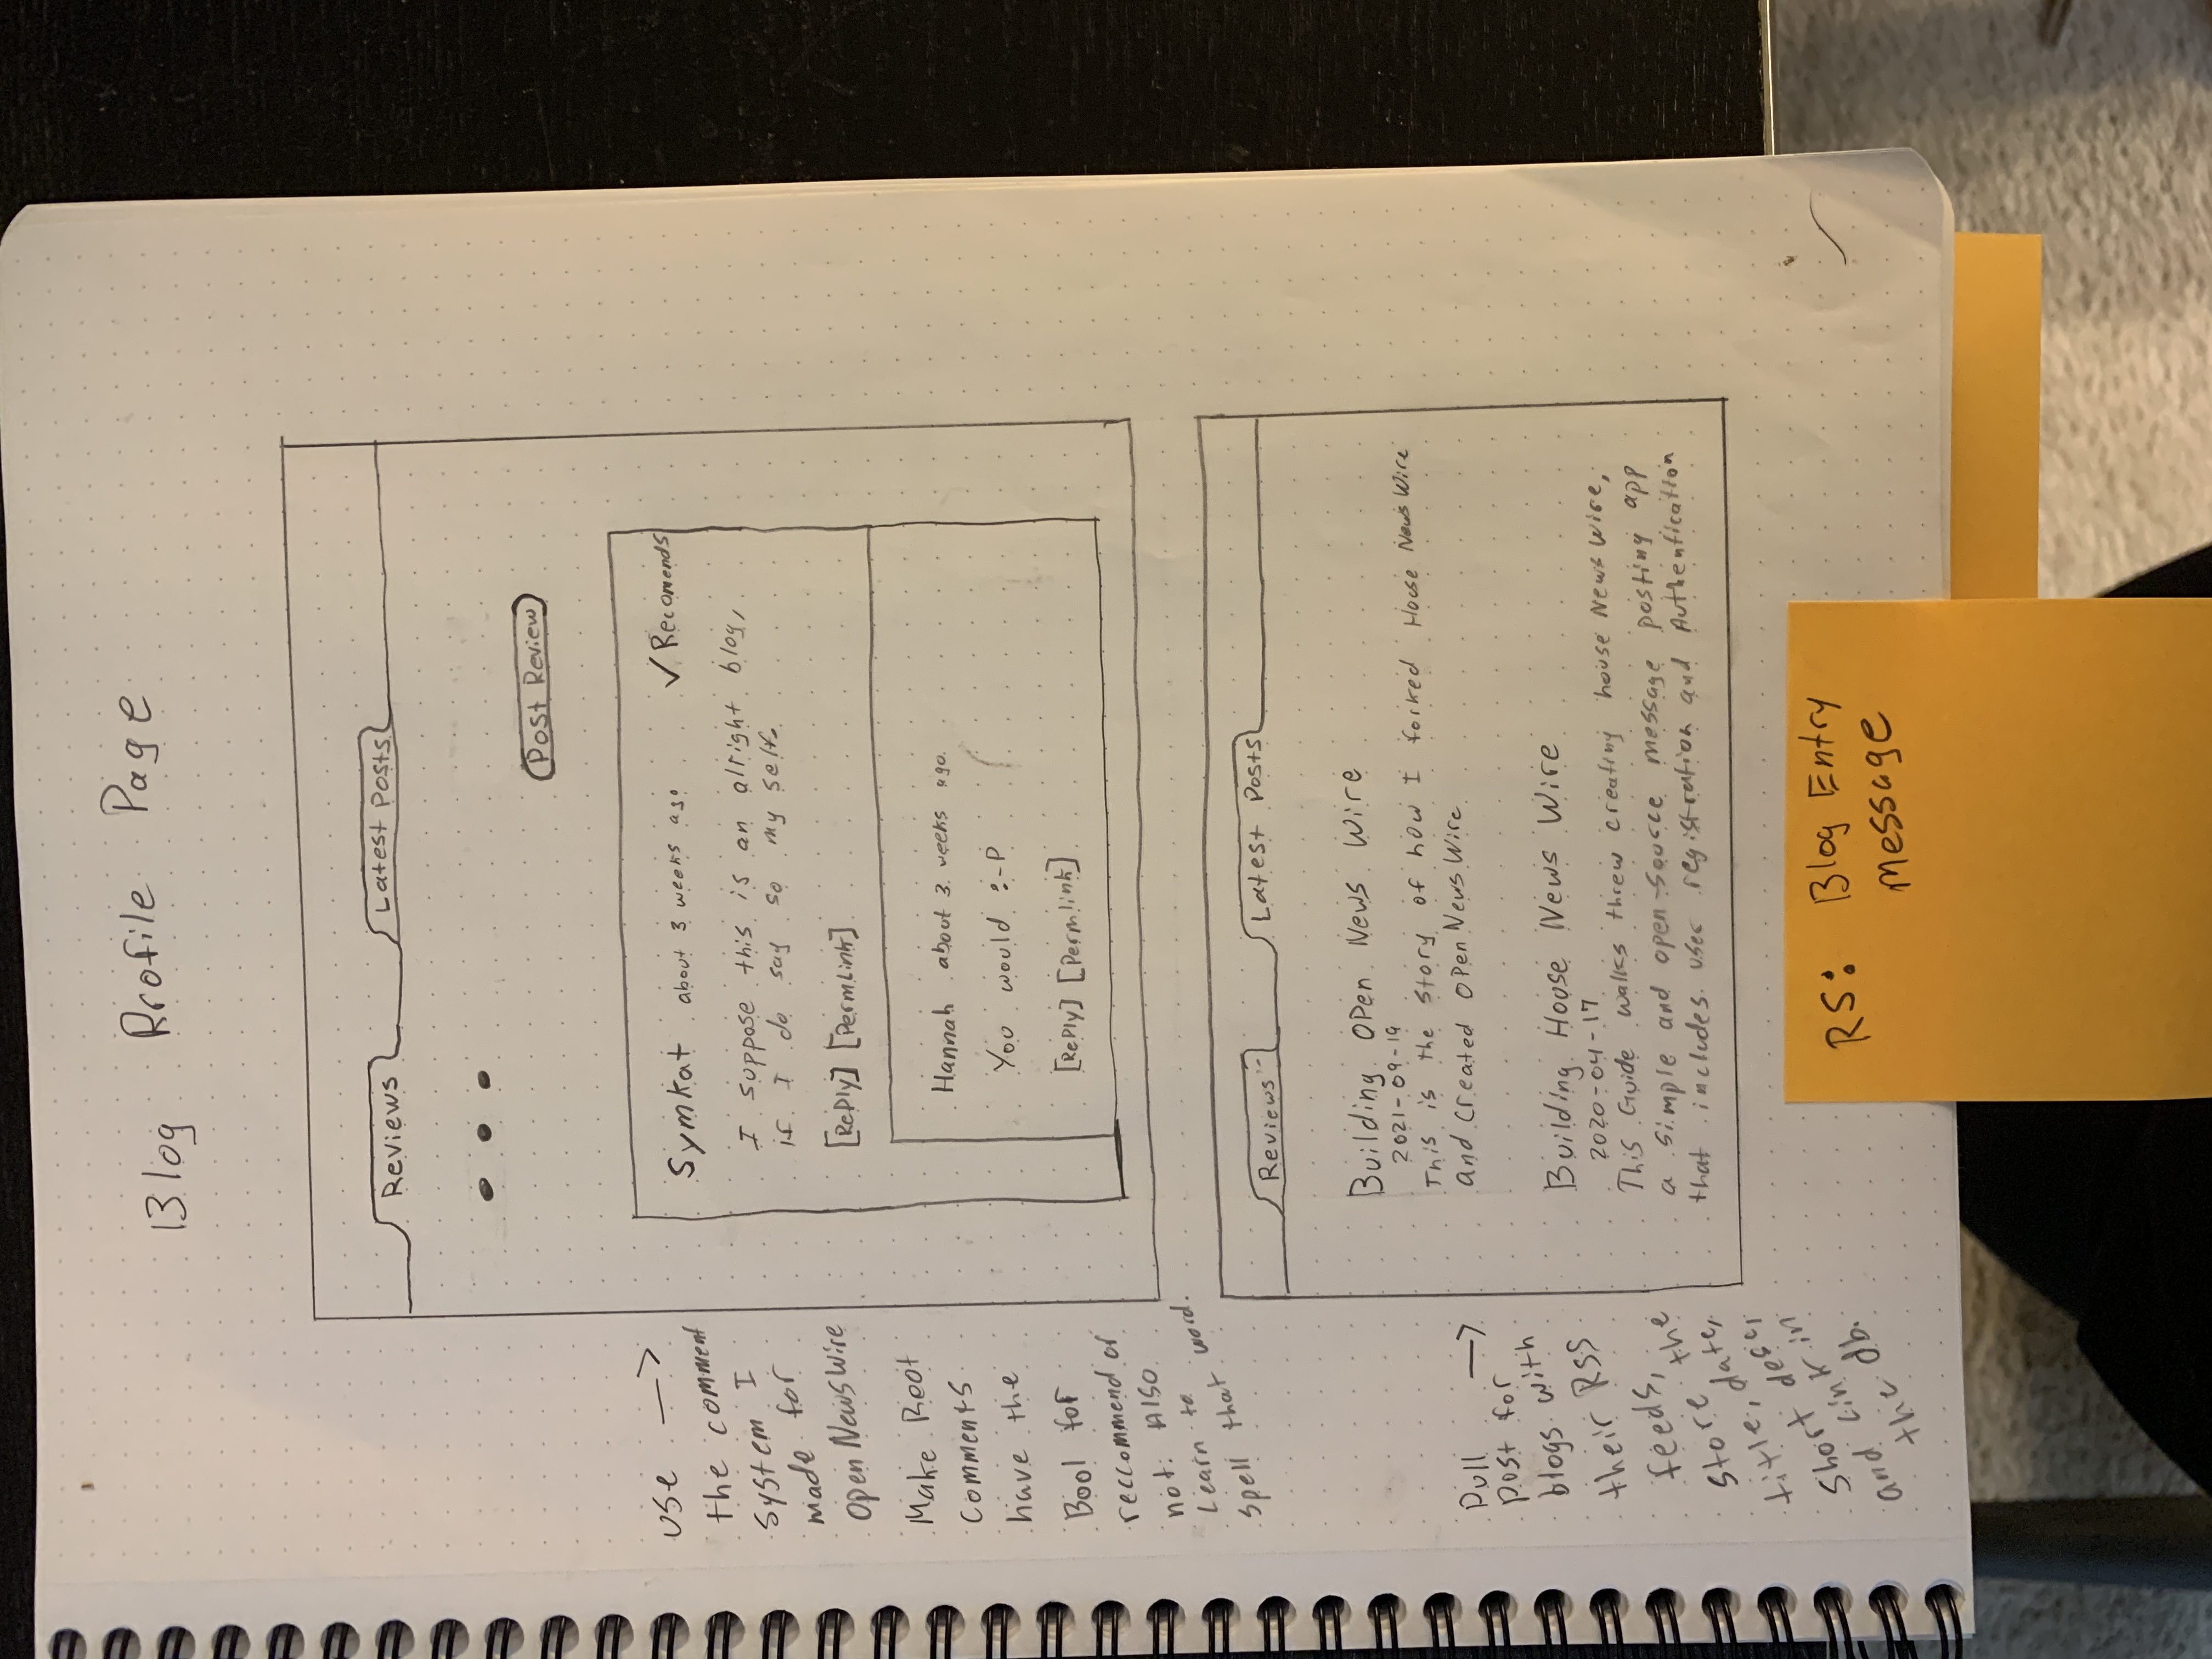 Blog Profile Page
Reviews
Latest Posts
• • •
Post Review
Symkat about 3 weeks ago
✓ Recomends
I suppose this is an alright blog,
if I do say so my self.
[Reply] [Permlink]
Hannah about 3 weeks ago.
You would :-P
[Reply] [Permlink]
use →
the comment
system I
made for
OpenNewsWire
Make Root
comments
have the
Bool for
reccommend or
not. Also
Learn to
spell that word.
Reviews
Latest Posts
Building Open News Wire
2021-09-19
This is the story of how I forked House News Wire
and created Open News Wire
Building House News Wire
2020-04-17
This Guide walks threw creating house News Wire,
a simple and open-source message posting app
that includes user registration and Authentication
Pull →
post for
blogs with
their RSS
feeds, the
store date,
title, desc,
short in
and link
the db.
RS: Blog Entry
message